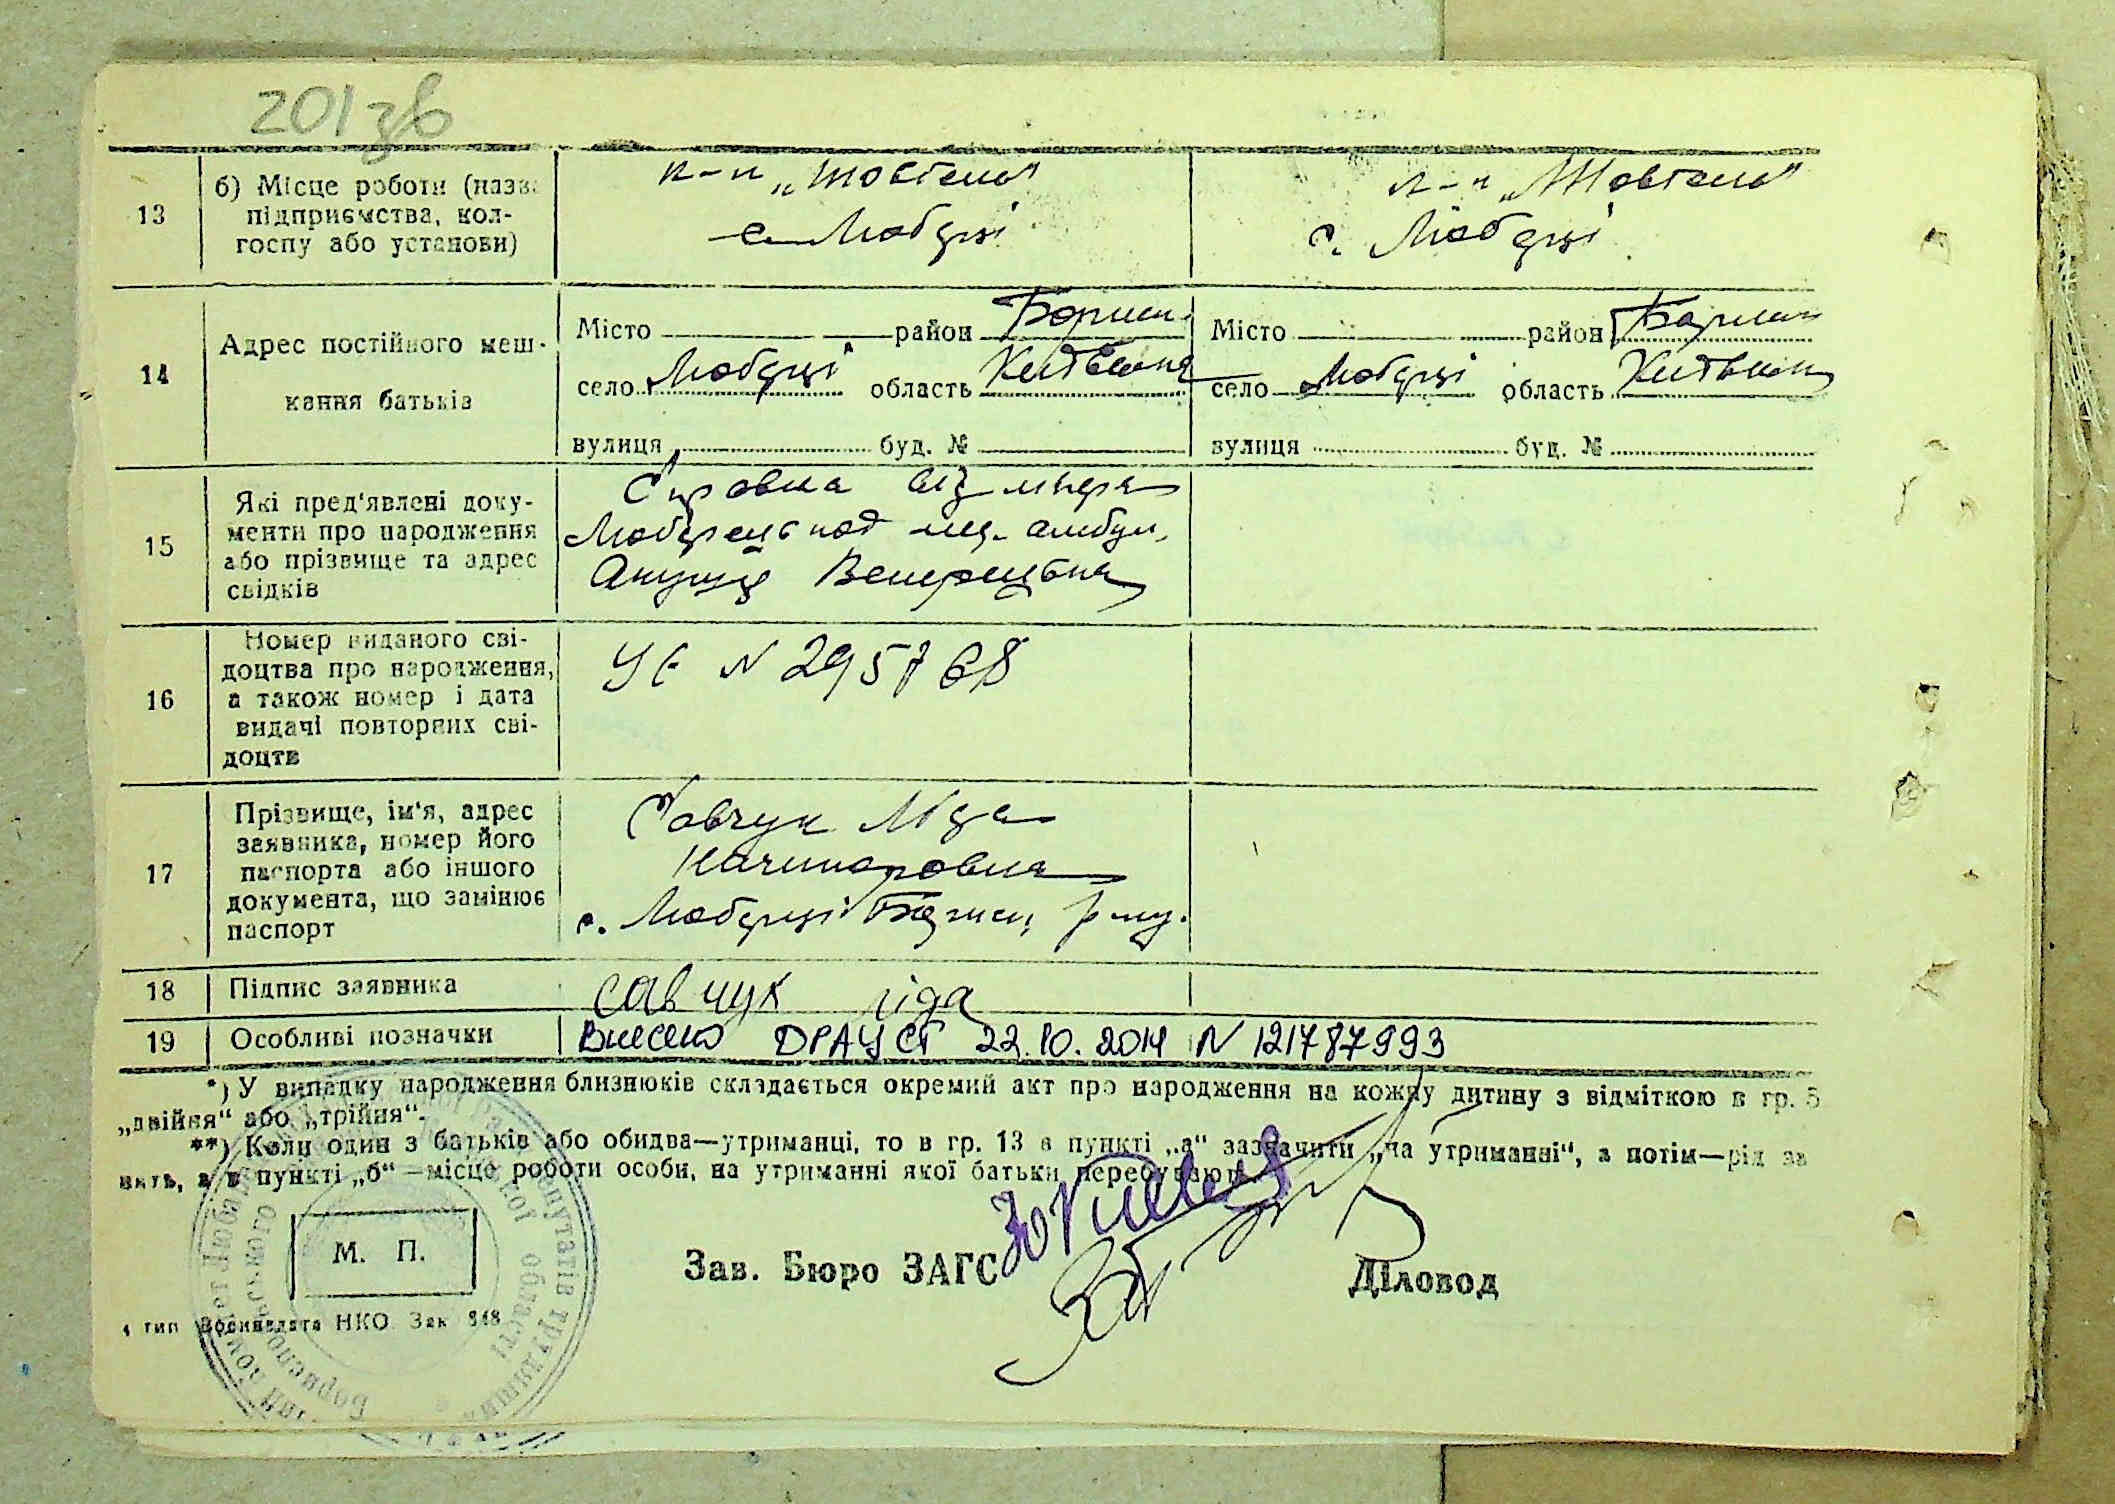 201зв
13
б) Місце роботи (назва
підприємства, кол-
госпу або установи)
к-п „Жовтень"
с. Любарці
к-п „Жовтень"
с. Любарці
14
Адрес постійного меш-
кання батьків
Місто район Борисп.
село Любарці область Київська
вулиця буд. №
Місто район Борисп
село Любарці область Київськ
вулиця буд. №
15
Які пред'явлені доку-
менти про народження
або прізвище та адрес
свідків
Справка від
Любарець амбул.
16
Номер виданого сві-
доцтва про народження,
а також номер і дата
видачі повторних сві-
доцтв
УЄ N 295768
17
Прізвище, ім'я, адрес
заявника, номер його
паспорта або іншого
документа, що замінює
паспорт
Савчук Ліда
с. Любарці Борисп р-ну.
18
Підпис заявника
савчук ліда
19
Особливі позначки
Внесено ДРАЦСГ 22.10.2014 N 121787993
*) У випадку народження близнюків складається окремий акт про народження на кожну дитину з відміткою в гр. 5
„двійня" або „трійня".
**) Коли один з батьків або обидва—утриманці, то в гр. 13 в пункті „а" зазначити „на утриманні", а потім—рід за
нять, а в пункті „б"—місце роботи особи, на утриманні якої батьки перебувають.
М. П.
Зав. Бюро ЗАГС
Діловод
4 тип Воениздата НКО Зак 848